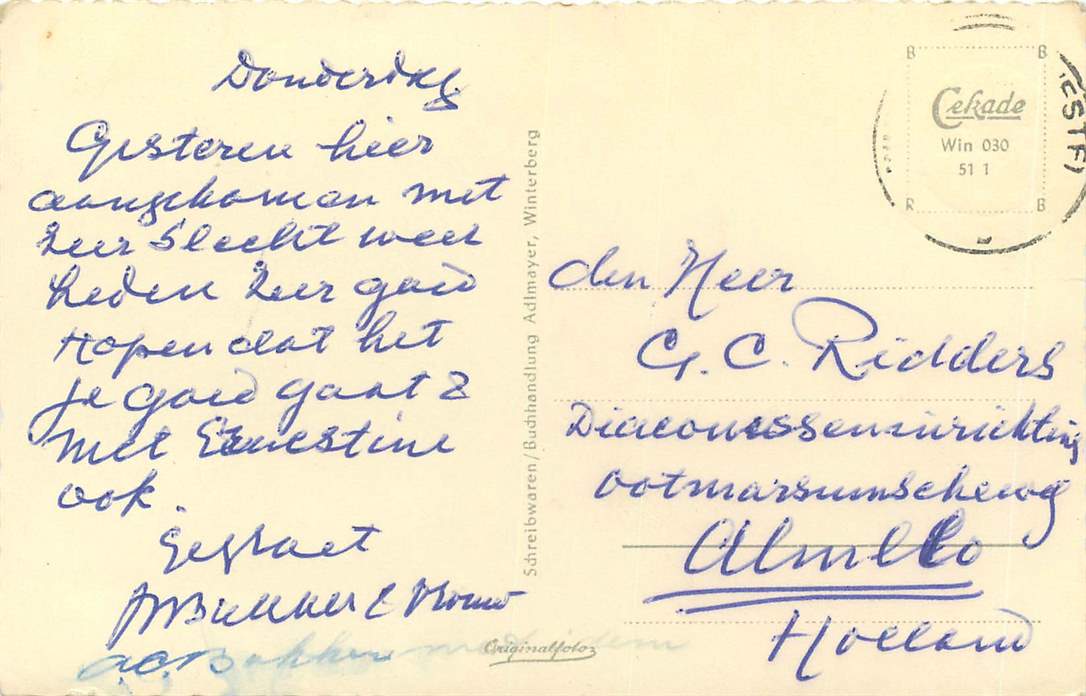 Donderdag
Gisteren hier
aangekomen met
zeer slecht weer
heden zeer goed
Hopen dat het
je goed gaat &
met Ernestine
ook.
Gegroet
Bakker &
A.C. Bakker
Schreibwaren/Buchhandlung Adlmayer, Winterberg
Originalfoto
B B
Cekade
Win 030
51 1
R B
ESTF)
den Heer
G. C. Ridders
Diaconesseninrichting
Ootmarsumscheweg
Almelo
Holland